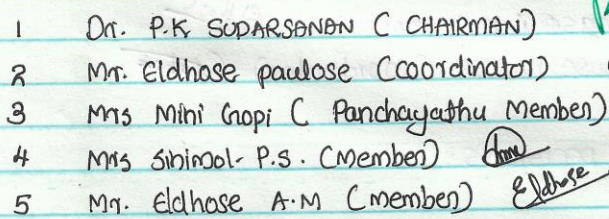 1 Dr. P.K SUDARSANAN ( CHAIRMAN)
2 Mr. Eldhose paulose (coordinator)
3 Mrs Mini Gopi ( Panchayathu Member)
4 Mrs Sinimol- P.S. (Member)
5 Mr. Eldhose A.M (member) Eldhose